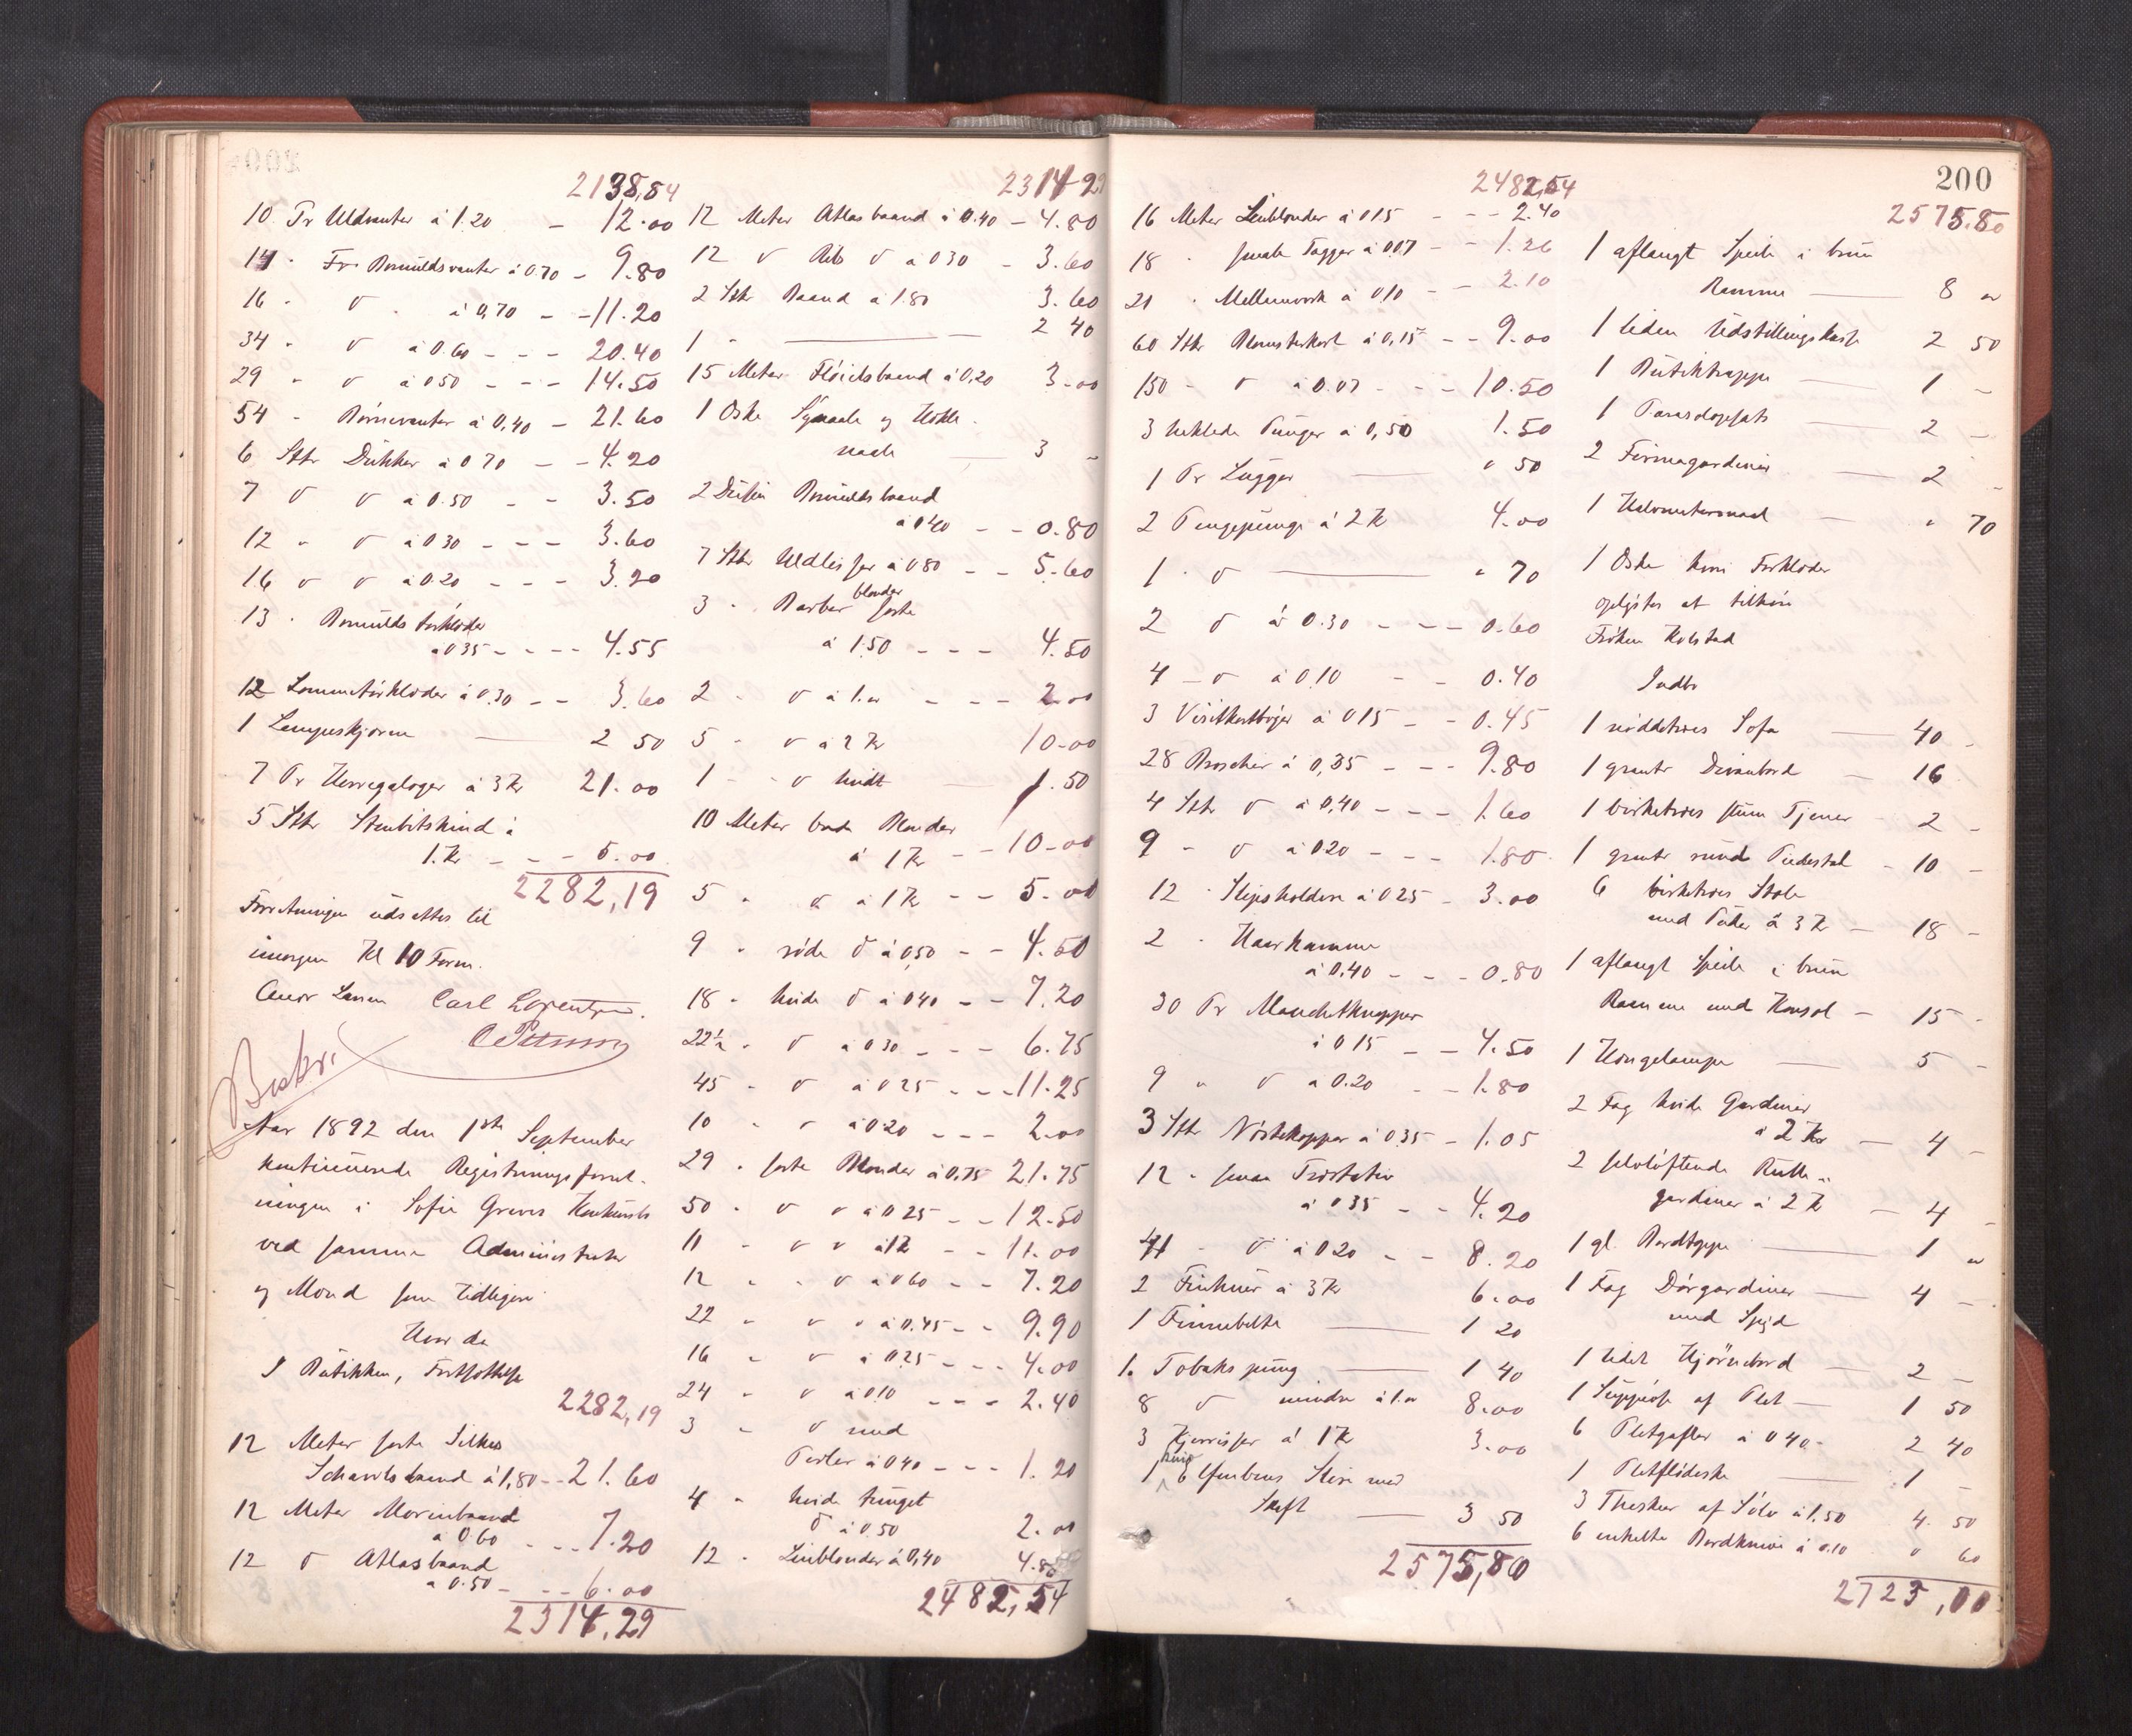 2138,54
10 Pr Uldvanter á 1.20 - 12.00
14 - Fr. Bomuldsvanter á 0.70 - 9.80
16 - σ á 0,70 - - 11.20
34 - σ á 0.60 - - - 20.40
29 - σ á 0.50 - - - 14.50
54 - Börnevanter á 0,40 - 21.60
6 Stkr Dukker á 0 70 - - 4.20
7 σ σ á 0.50 - - 3.50
12 - σ á 0 30 - - - 3.60
16 σ σ á 0.20 - - - 3.20
13 - Bomulds Forklæder
á 0 35 - - - - 4.55
12 Lommetörklæder á 0.30 - - 3.60
1 Lampeskjærm — 2 50
7 Pr Herregaloger á 3 Kr 21.00
5 Stkr Stenbitskind á
1. Kr - - - 5.00
2282,19
Forretningen udsættes til
imorgen Kl 10 Form.
Larsen Carl Lorentzen.
Beskr.
Aar 1892 den 1ste September
kontinuerede Registreringsforret-
ningen i Sofie Greves Konkursbo
ved samme Administrator
og Mænd som tidligere
Hvor da
I Butikken, Fortsættelse
2282,19
12 Meter sorte Silkes
Schawlsbaand á 1,80 - - 21.60
12 Meter Moirébaand
á 0.60 - - - 7.20
12 σ Atlasbaand
á 0.50 - - - 6.00
2314,29
2314.29
12 Meter Atlasbaand á 0.40 - 4.80
12 σ Rib σ á 0 30 - 3.60
2 Stkr Baand á 1.80 3.60
1 - — 2 40
15 Meter Flöielsbaand á 0,20 3.00
1 Öske Synaale og Hækle-
naale — 3 -
2 Dusin Bomuldsbaand
á 0 40 - - 0.80
7 Stkr Uldlisser á 0 80 - - 5.60
3 - Barber blonder sorte
á 1.50 - - - 4.50
2 - σ á 1.00 - - - 2.00
5 - σ á 2 Kr 10.00
1 - σ hvidt — 1.50
10 Meter brede Blonder
á 1 Kr - - 10.00
5 - σ á 1 Kr - - 5.00
9 - röde σ á 0,50 - - 4.50
18 - hvide σ á 0 40 - - 7.20
22½ - σ á 0 30 - - - 6.75
45 - σ á 0 25 - - - 11.25
10 - σ á 0 20 - - - 2.00
29 - sorte Blonder á 0,75 21.75
50 - σ σ á 0 25 - - 12.50
11 - σ σ á 1 Kr - - 11.00
12 - - σ á 0 60 - - 7.20
22 - σ σ á 0.45 - - 9.90
16 - σ á 0.25 - - - 4.00
24 - σ á 0.10 - - - 2.40
3 - σ med
Perler á 0 40 - - - 1.20
4 - hvide tunget
σ á 0.50 2.00
12 - Linblonder á 0,40 4.80
2482,54
200
2482,54
16 Meter Linblonder á 0 15 - - - 2.40
18 - smale Tagger á 0.07 - - 1.26
21 - Mellemværk á 0,10 - - 2.10
60 Stkr Blomsterkort á 0,15 - - 9.00
150 - σ á 0.07 - - - 10.50
3 heklede Punger á 0,50 1.50
1 Pr Lugger — σ 50
2 Pengepunge á 2 Kr 4.00
1 - σ — " 70
2 σ á 0.30 - - - 0.60
4 - σ á 0.10 - - 0.40
3 Visitkortbøger á 0 15 - - 0.45
28 Broscher á 0,35 - - - 9.80
4 Stkr σ á 0,40 - - - 1.60
9 - σ á 0 20 - - - 1.80
12 - Slipsholdere á 0 25 - 3.00
2 - Haarkamme
á 0.40 - - - 0.80
30 Pr Manchetknapper
á 0 15 - - 4.50
9 " σ á 0.20 - - 1.80
3 Stkr Nöstekopper á 0.35 - 1.05
12 - smaa Træstativ
á 0 35 - - 4.20
41 - σ á 0 20 - - 8.20
2 á 3 Kr 6.00
1 Finnebelte — 1 20
1. Tobakspung — 1 40
8 σ mindre á 1.00 8.00
3 á 1 Kr 3.00
1 med
Skaft — 3 50
2575,80
2575.80
1 aflangt Speile i brun
Ramme — 8 00
1 liden Udstillingskasse 2 50
1 Butiktrappe — 1 -
1 Parasolopsats — 2 -
2 Firmagardiner — 2 -
1 Halvmetermaal — " 70
1 Öske hvori Forklæder
oplystes at tilhöre
Fröken Kolstad
Indbo
1 nöddetræes Sofa — 40 -
1 grantr Divanbord — 16
1 birketræes stum Tjener - 2 -
1 grantr rund Piedestal - 10 -
6 birketræes Stole
med Puder á 3 Kr — 18 -
1 aflangt Speile i brun
Ramme med Konsol - 15 -
1 Hængelampe — 5 -
2 Fag hvide Gardiner
á 2 Kr — 4 -
2 selvløftende Rulle-
gardiner á 2 Kr — 4 -
1 gl. Bordteppe — 1 00
1 Fag Dörgardiner — 4 -
med Spyd
1 lidet Hjörnebord — 2 -
1 Suppeøse af Plet — 1 50
6 Pletgafler á 0 40 - 2 40
1 Pletflödeske — 1 -
3 Theskeer af Sölv á 1.50 4. 50
6 enkelte Bordknive á 0.10 σ 60
2723,00